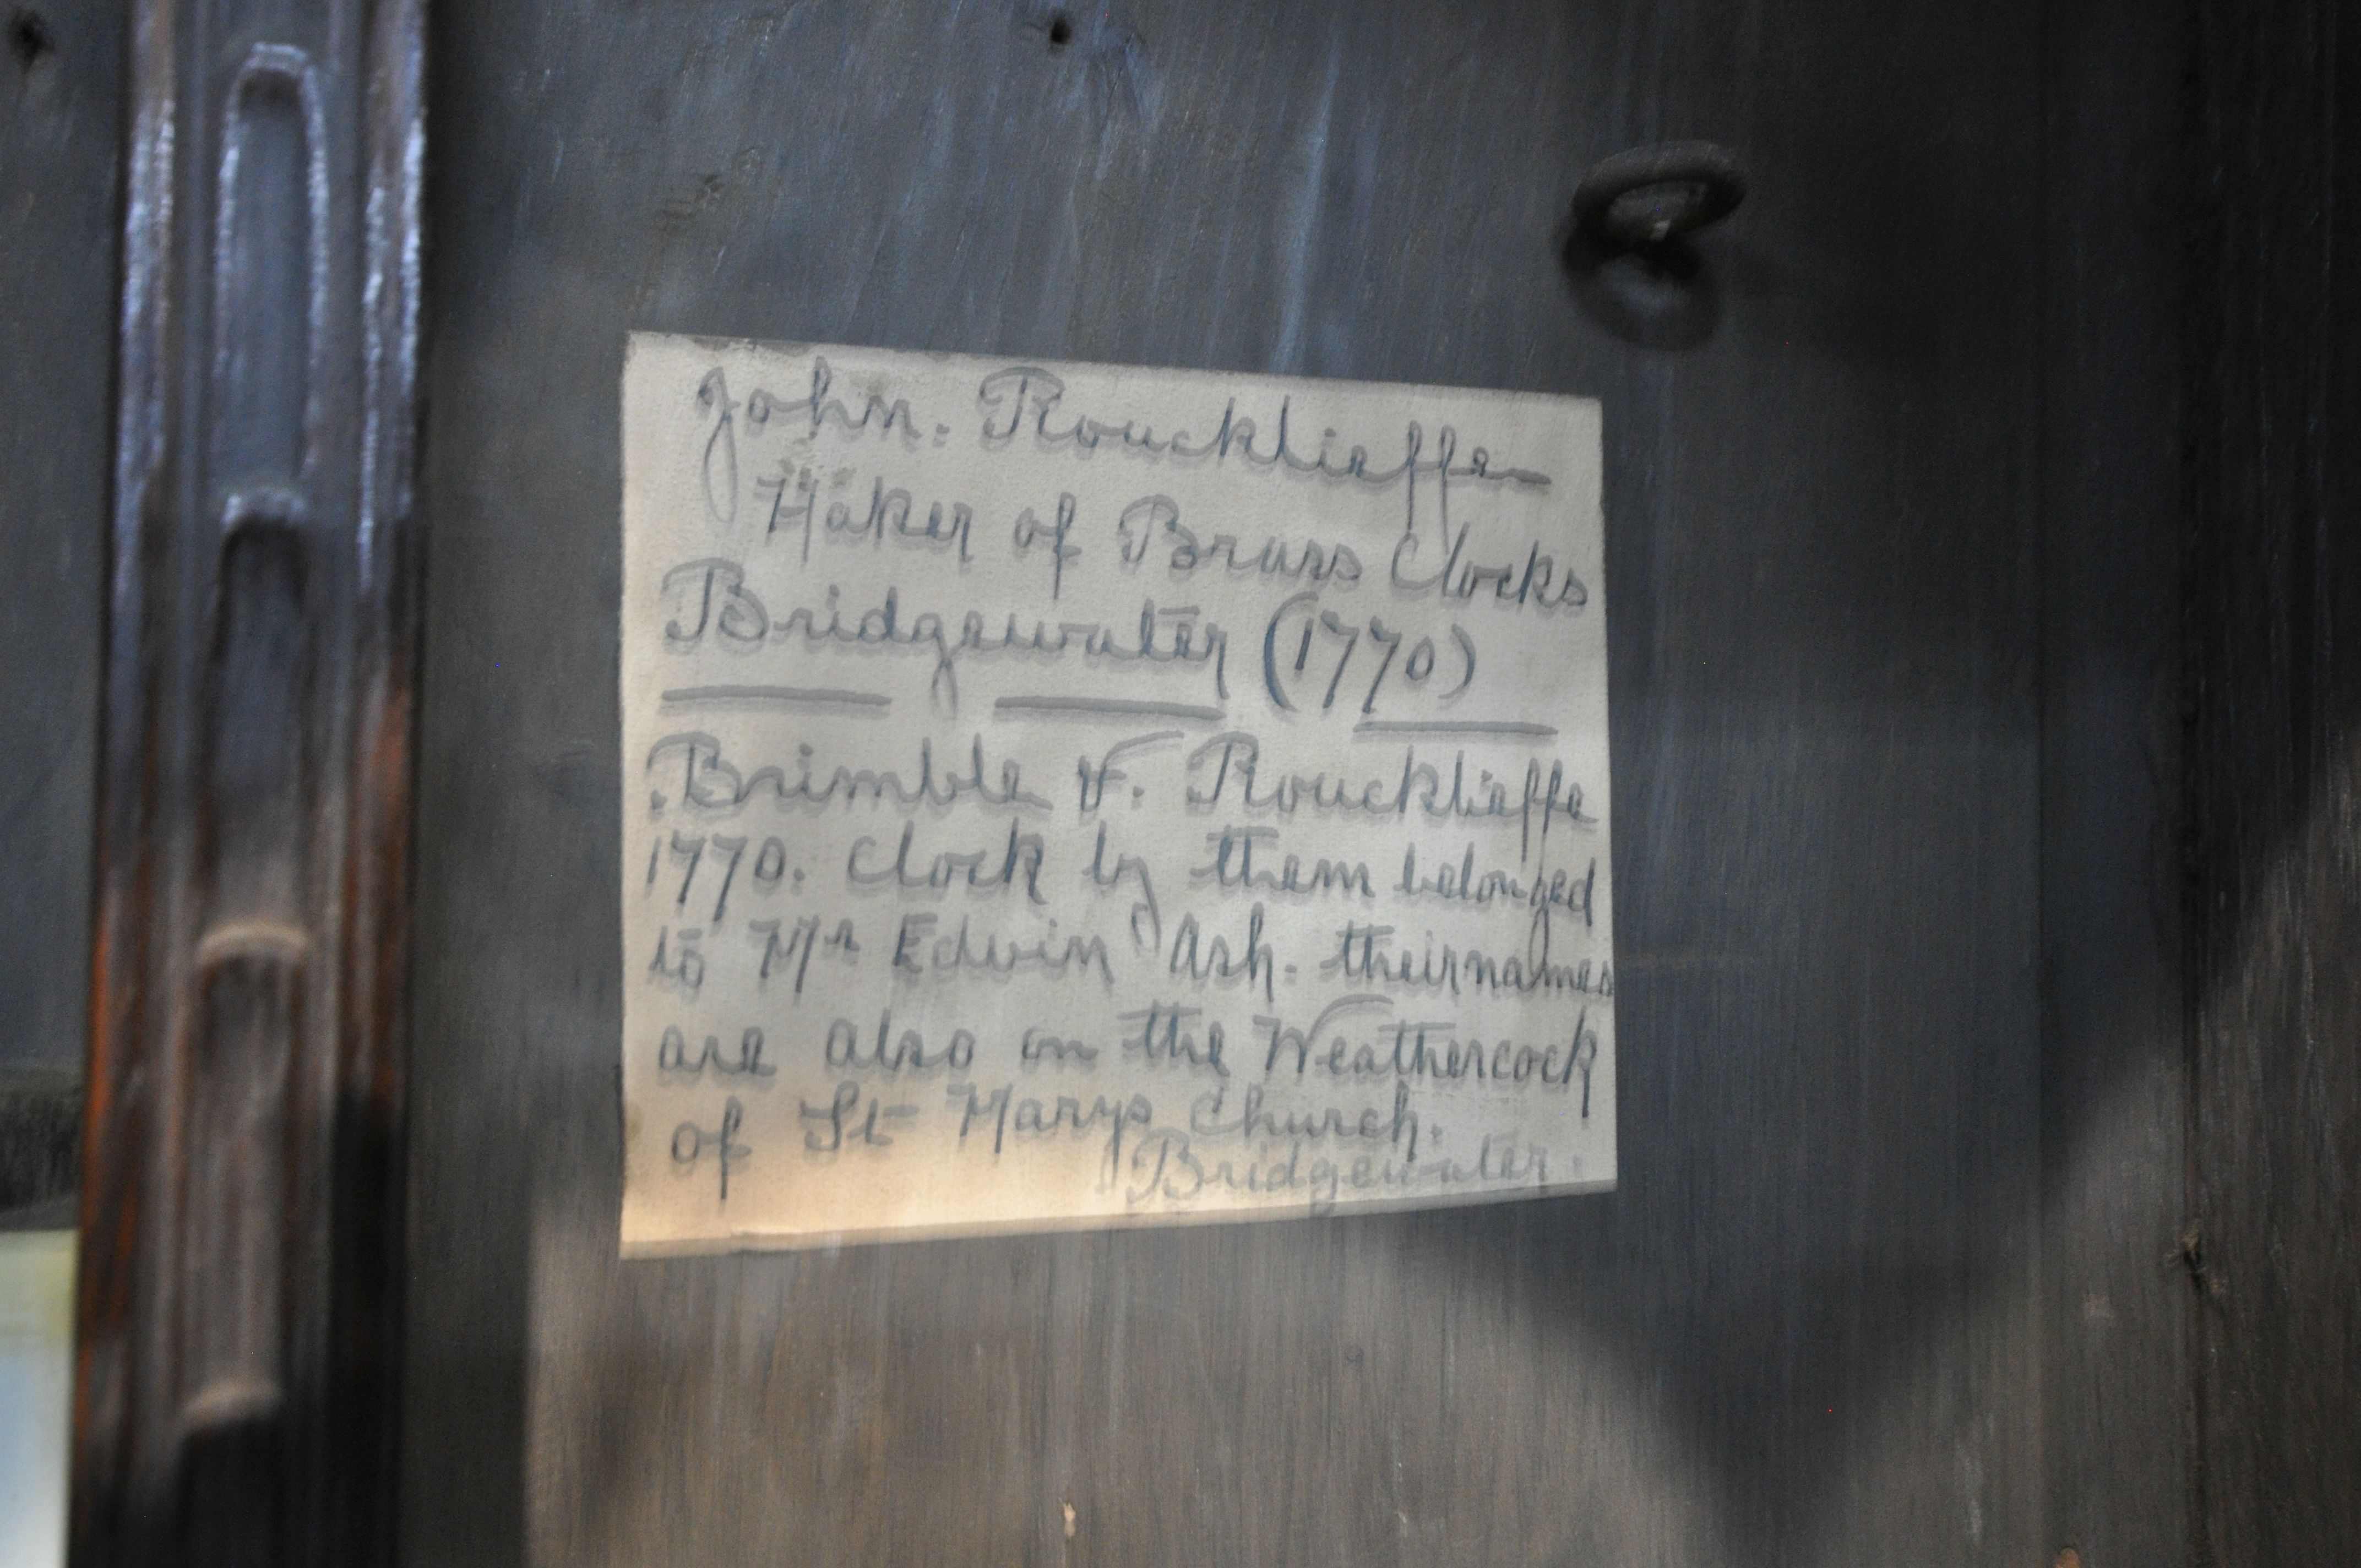 John. Roucklieffe
Maker of Brass Clocks
Bridgewater (1770)
Brimble & Roucklieffe
1770. Clock by them belonged
to Mr Edwin Ash. their names
are also on the Weathercock
of St Marys Church.
Bridgewater.